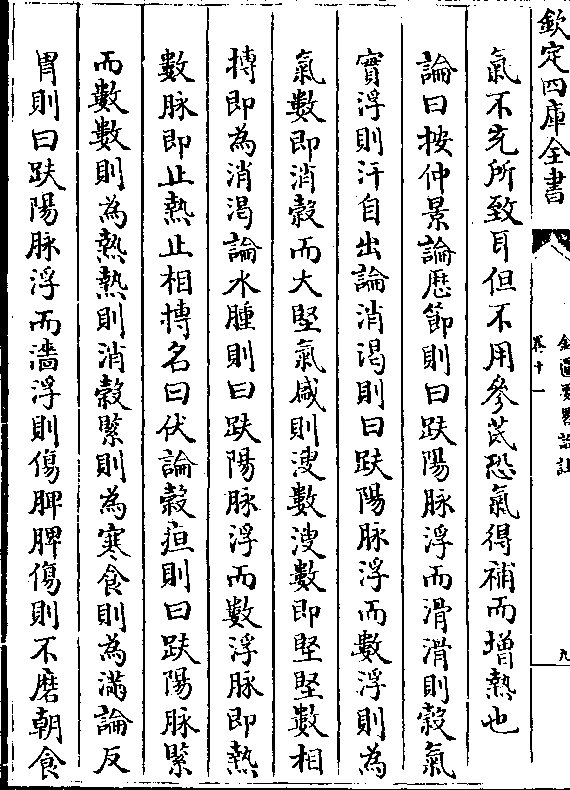 欽定四庫全書
金匱要略論註
卷十一
九
氣不充所致耳但不用參芪恐氣得補而增熱也
論曰按仲景論歷節則曰趺陽脉浮而滑滑則穀氣
實浮則汗自出論消渴則曰趺陽脉浮而數浮則為
氣數即消穀而大堅氣咸則溲數溲數即堅堅數相
摶即為消渴論水腫則曰趺陽脉浮而數浮脉即熱
數脉即止熱止相摶名曰伏論穀疸則曰趺陽脉緊
而數數則為熱熱則消穀緊則為寒食則為滿論反
胃則曰趺陽脉浮而濇浮則傷脾脾傷則不磨朝食